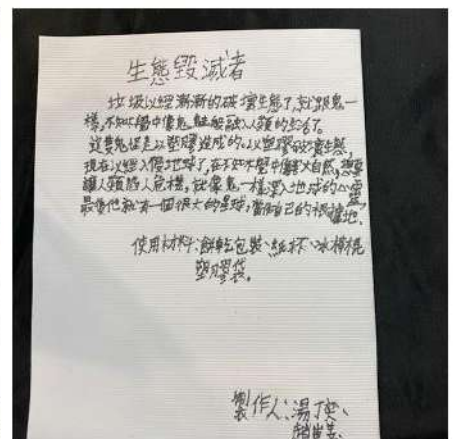 生態毀滅者
垃圾以經漸漸的破壞生態了,就跟鬼一
樣,不知不覺中像鬼魅般融入人類的生活了。
這隻鬼他是以塑膠造成的,以塑膠破壞生態,
現在以經入侵地球了,在不知不覺中傷害大自然,想要
讓人類陷入危機,就像鬼一樣深入地球的心靈,
最後他就有一個很大的星球,當作自己的根據地。
使用材料:餅乾包裝、紙杯、冰棒棍
塑膠袋。
製作人:湯